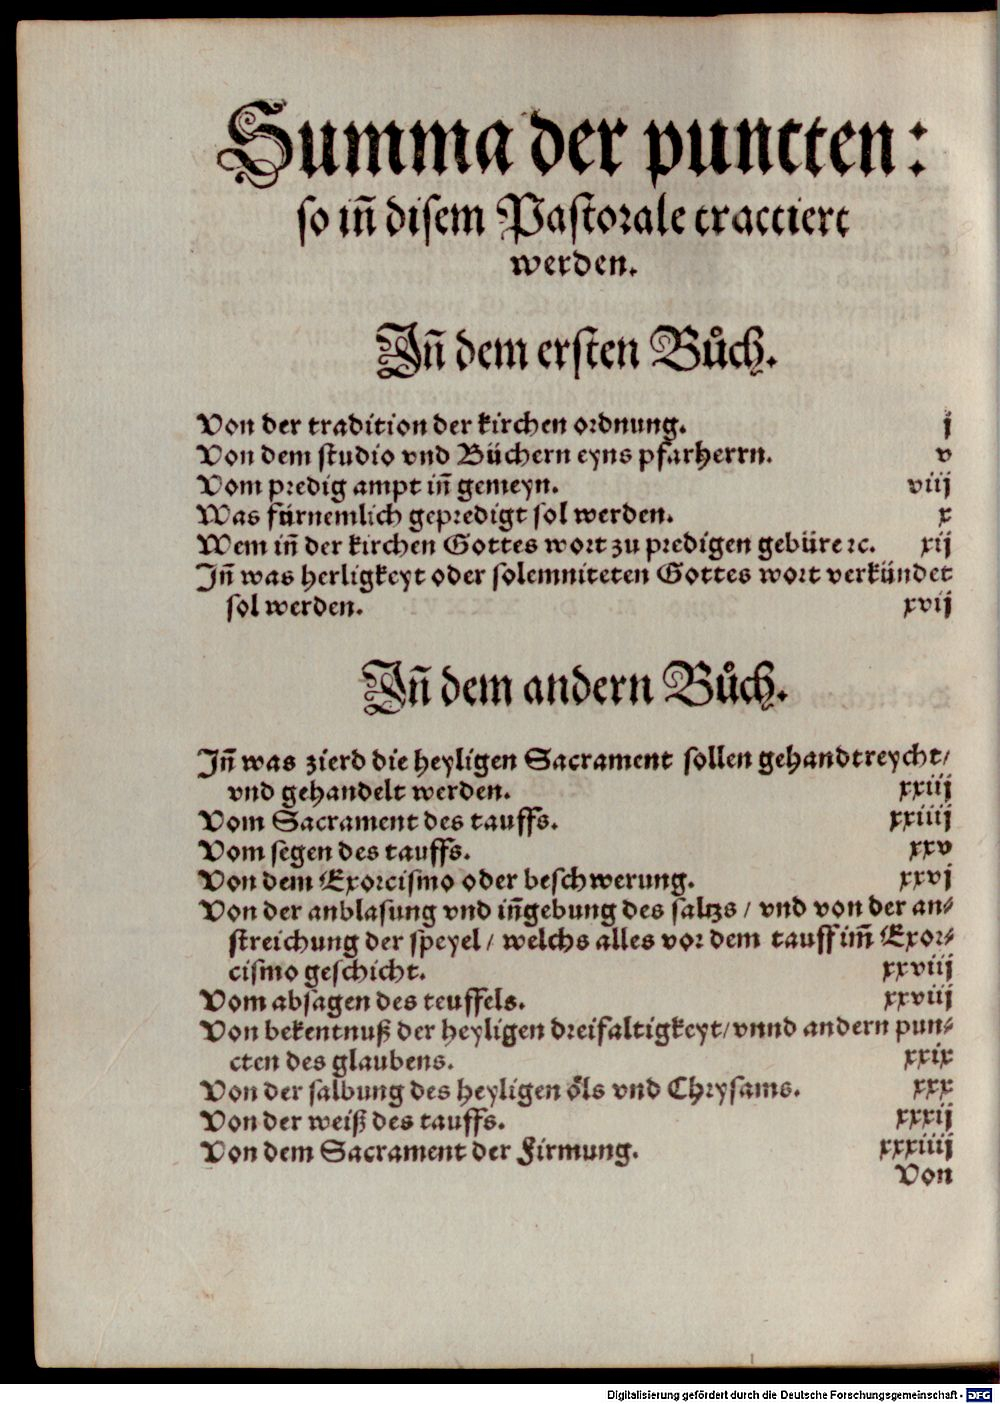 Summa der puncten:
so iñ disem Pastorale tractiert
werden.
Jñ dem ersten Bůch.
Von der tradition der kirchen ordnung. j
Von dem studio vnd Büchern eyns pfarherrn. v
Vom predig ampt iñ gemeyn. viij
Was fürnemlich gepredigt sol werden. x
Wem iñ der kirchen Gottes wort zu predigen gebüre ꝛc. xij
Jñ was herligkeyt oder solemniteten Gottes wort verkündet
sol werden. xvij
Jñ dem andern Bůch.
Jñ was zierd die heyligen Sacrament sollen gehandtreycht/
vnd gehandelt werden. xxiij
Vom Sacrament des tauffs. xxiiij
Vom segen des tauffs. xxv
Von dem Exorcismo oder beschwerung. xxvj
Von der anblasung vnd iñgebung des saltzs / vnd von der an⸗
streichung der speyel / welchs alles vor dem tauff im̃ Exor⸗
cismo geschicht. xxviij
Vom absagen des teuffels. xxviij
Von bekentnuß der heyligen dreifaltigkeyt/ vnnd andern pun⸗
cten des glaubens. xxix
Von der salbung des heyligen öls vnd Chrysams. xxx
Von der weiß des tauffs. xxxij
Von dem Sacrament der Firmung. xxxiiij
Von
Digitalisierung gefördert durch die Deutsche Forschungsgemeinschaft - DFG